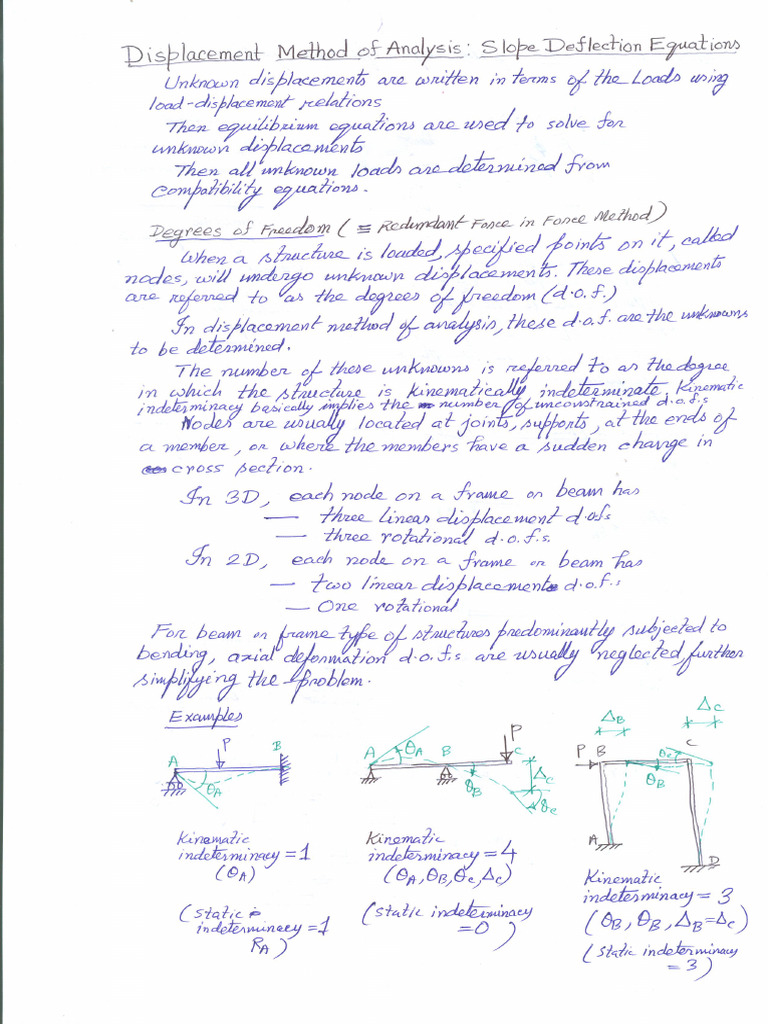 Displacement Method of Analysis: Slope Deflection Equations
Unknown displacements are written in terms of the Loads using
load-displacement relations
Then equilibrium equations are used to solve for
unknown displacements
Then all unknown loads are determined from
compatibility equations.
Degrees of Freedom (≡ Redundant Force in Force Method)
When a structure is loaded, specified points on it, called
nodes, will undergo unknown displacements. These displacements
are referred to as the degrees of freedom (d.o.f.)
In displacement method of analysis, these d.o.f. are the unknowns
to be determined.
The number of these unknowns is referred to as the degree
in which the structure is kinematically indeterminate. Kinematic
indeterminacy basically implies the number of unconstrained d.o.f.s
Nodes are usually located at joints, supports, at the ends of
a member, or where the members have a sudden change in
cross section.
In 3D, each node on a frame or beam has
— three linear displacement d.o.fs
— three rotational d.o.f.s.
In 2D, each node on a frame or beam has
— two linear displacement d.o.f.s
— One rotational
For beam or frame type of structures predominantly subjected to
bending, axial deformation d.o.f.s are usually neglected, further
simplifying the problem.
Examples
A P B θA
A θA B P C θB ΔC θC
ΔB ΔC P B C θC θB A D
Kinematic
indeterminacy = 1
(θA)
(static
indeterminacy = 1
RA)
Kinematic
indeterminacy = 4
(θA, θB, θC, ΔC)
(static indeterminacy
= 0)
Kinematic
indeterminacy = 3
(θB, θB, ΔB = ΔC)
(static indeterminacy
= 3)